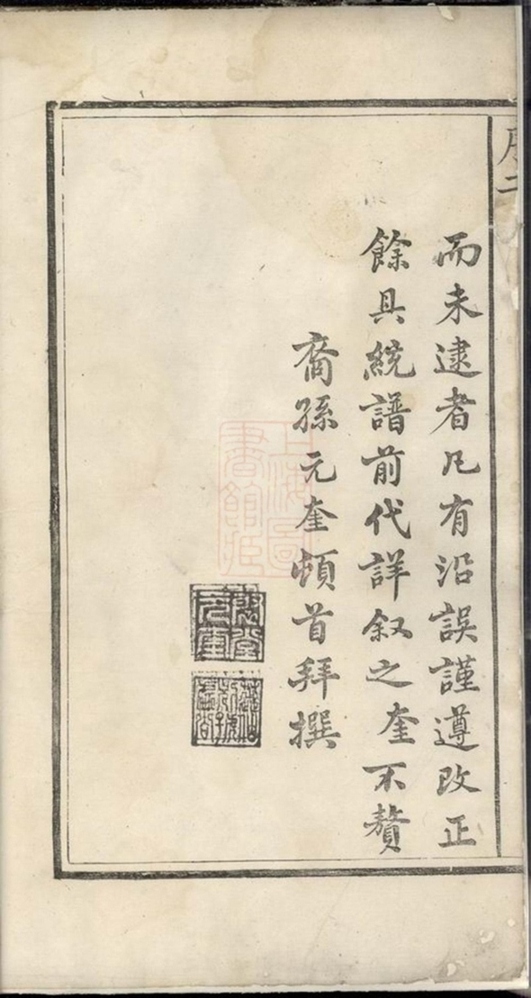 序二
而未逮者凡有沿誤謹遵改正
餘具統譜前代詳叙之奎不贅
裔孫元奎頓首拜撰
上海圖
書館藏